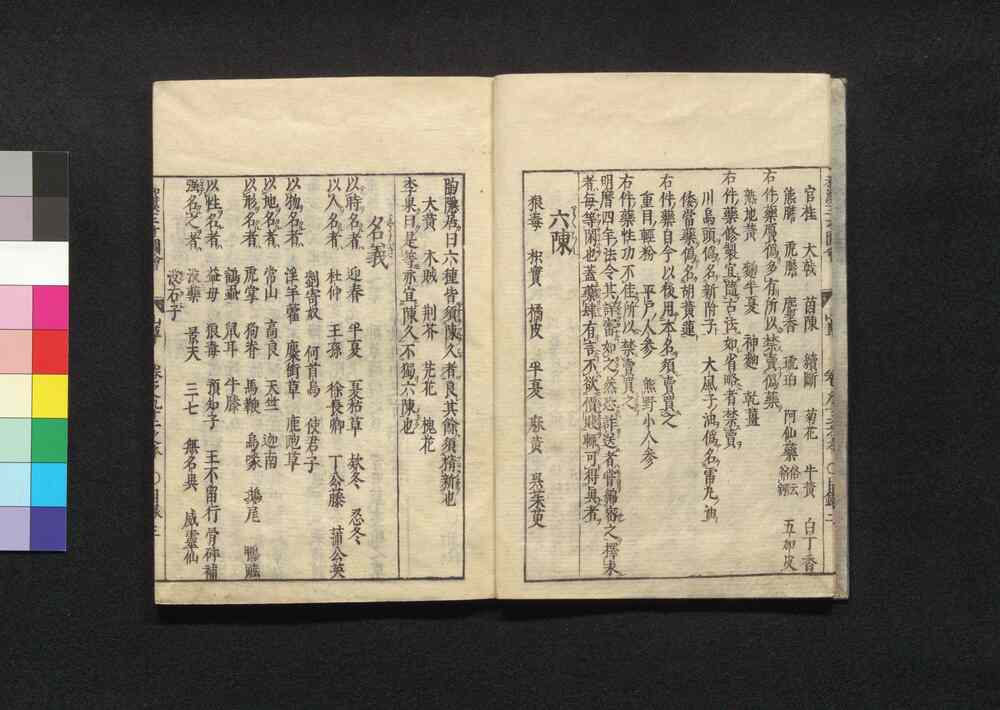 官桂 大戟 茵陳 續斷 菊花 牛黄 白丁香
熊膽 乕膽 麝香 琥珀 阿仙藥 五加皮
右件藥贋偽多有所以禁賣偽藥
熟地黄 麹半夏 神麹 乾薑
右件藥修製宜隨古法如省略者禁賣
川烏頭偽名新附子 大風子油偽名雷丸油
倭當藥偽名胡黄連
右件藥自今以後用本名須賣買之
重目輕粉 平戸人參 熊野小人參
右件藥性功不佳所以禁賣買之
明曆四年法令其詳審如之然恐詐送者嘗偏審之擇未
者毎等閑也蓋藥肆有言不欲價賤輒可得眞者
六陳
狼毒 枳實 橘皮 半夏 麻黄 呉茱萸
陶隱居曰六種皆須陳久者良其餘須精新也
大黄 木賊 荆芥 芫花 槐花
李杲曰是等亦宜陳久不獨六陳也
名義
以時名者 迎春 半夏 夏枯草 欵冬 忍冬
以人名者 杜仲 王孫 徐長卿 丁公藤 蒲公英
劉寄奴 何首烏 使君子
以物名者 淫羊藿 麋銜草 鹿跑草
以地名者 常山 高良 天竺 迦南
以形名者 乕掌 狗脊 馬鞭 烏喙 鴟尾 鴨跖
鶴蝨 鼠耳 牛膝
以性名者 益母 狼毒 預知子 王不留行 骨碎補
強名之者 没藥 景天 三七 無名異 威靈仙
没石子